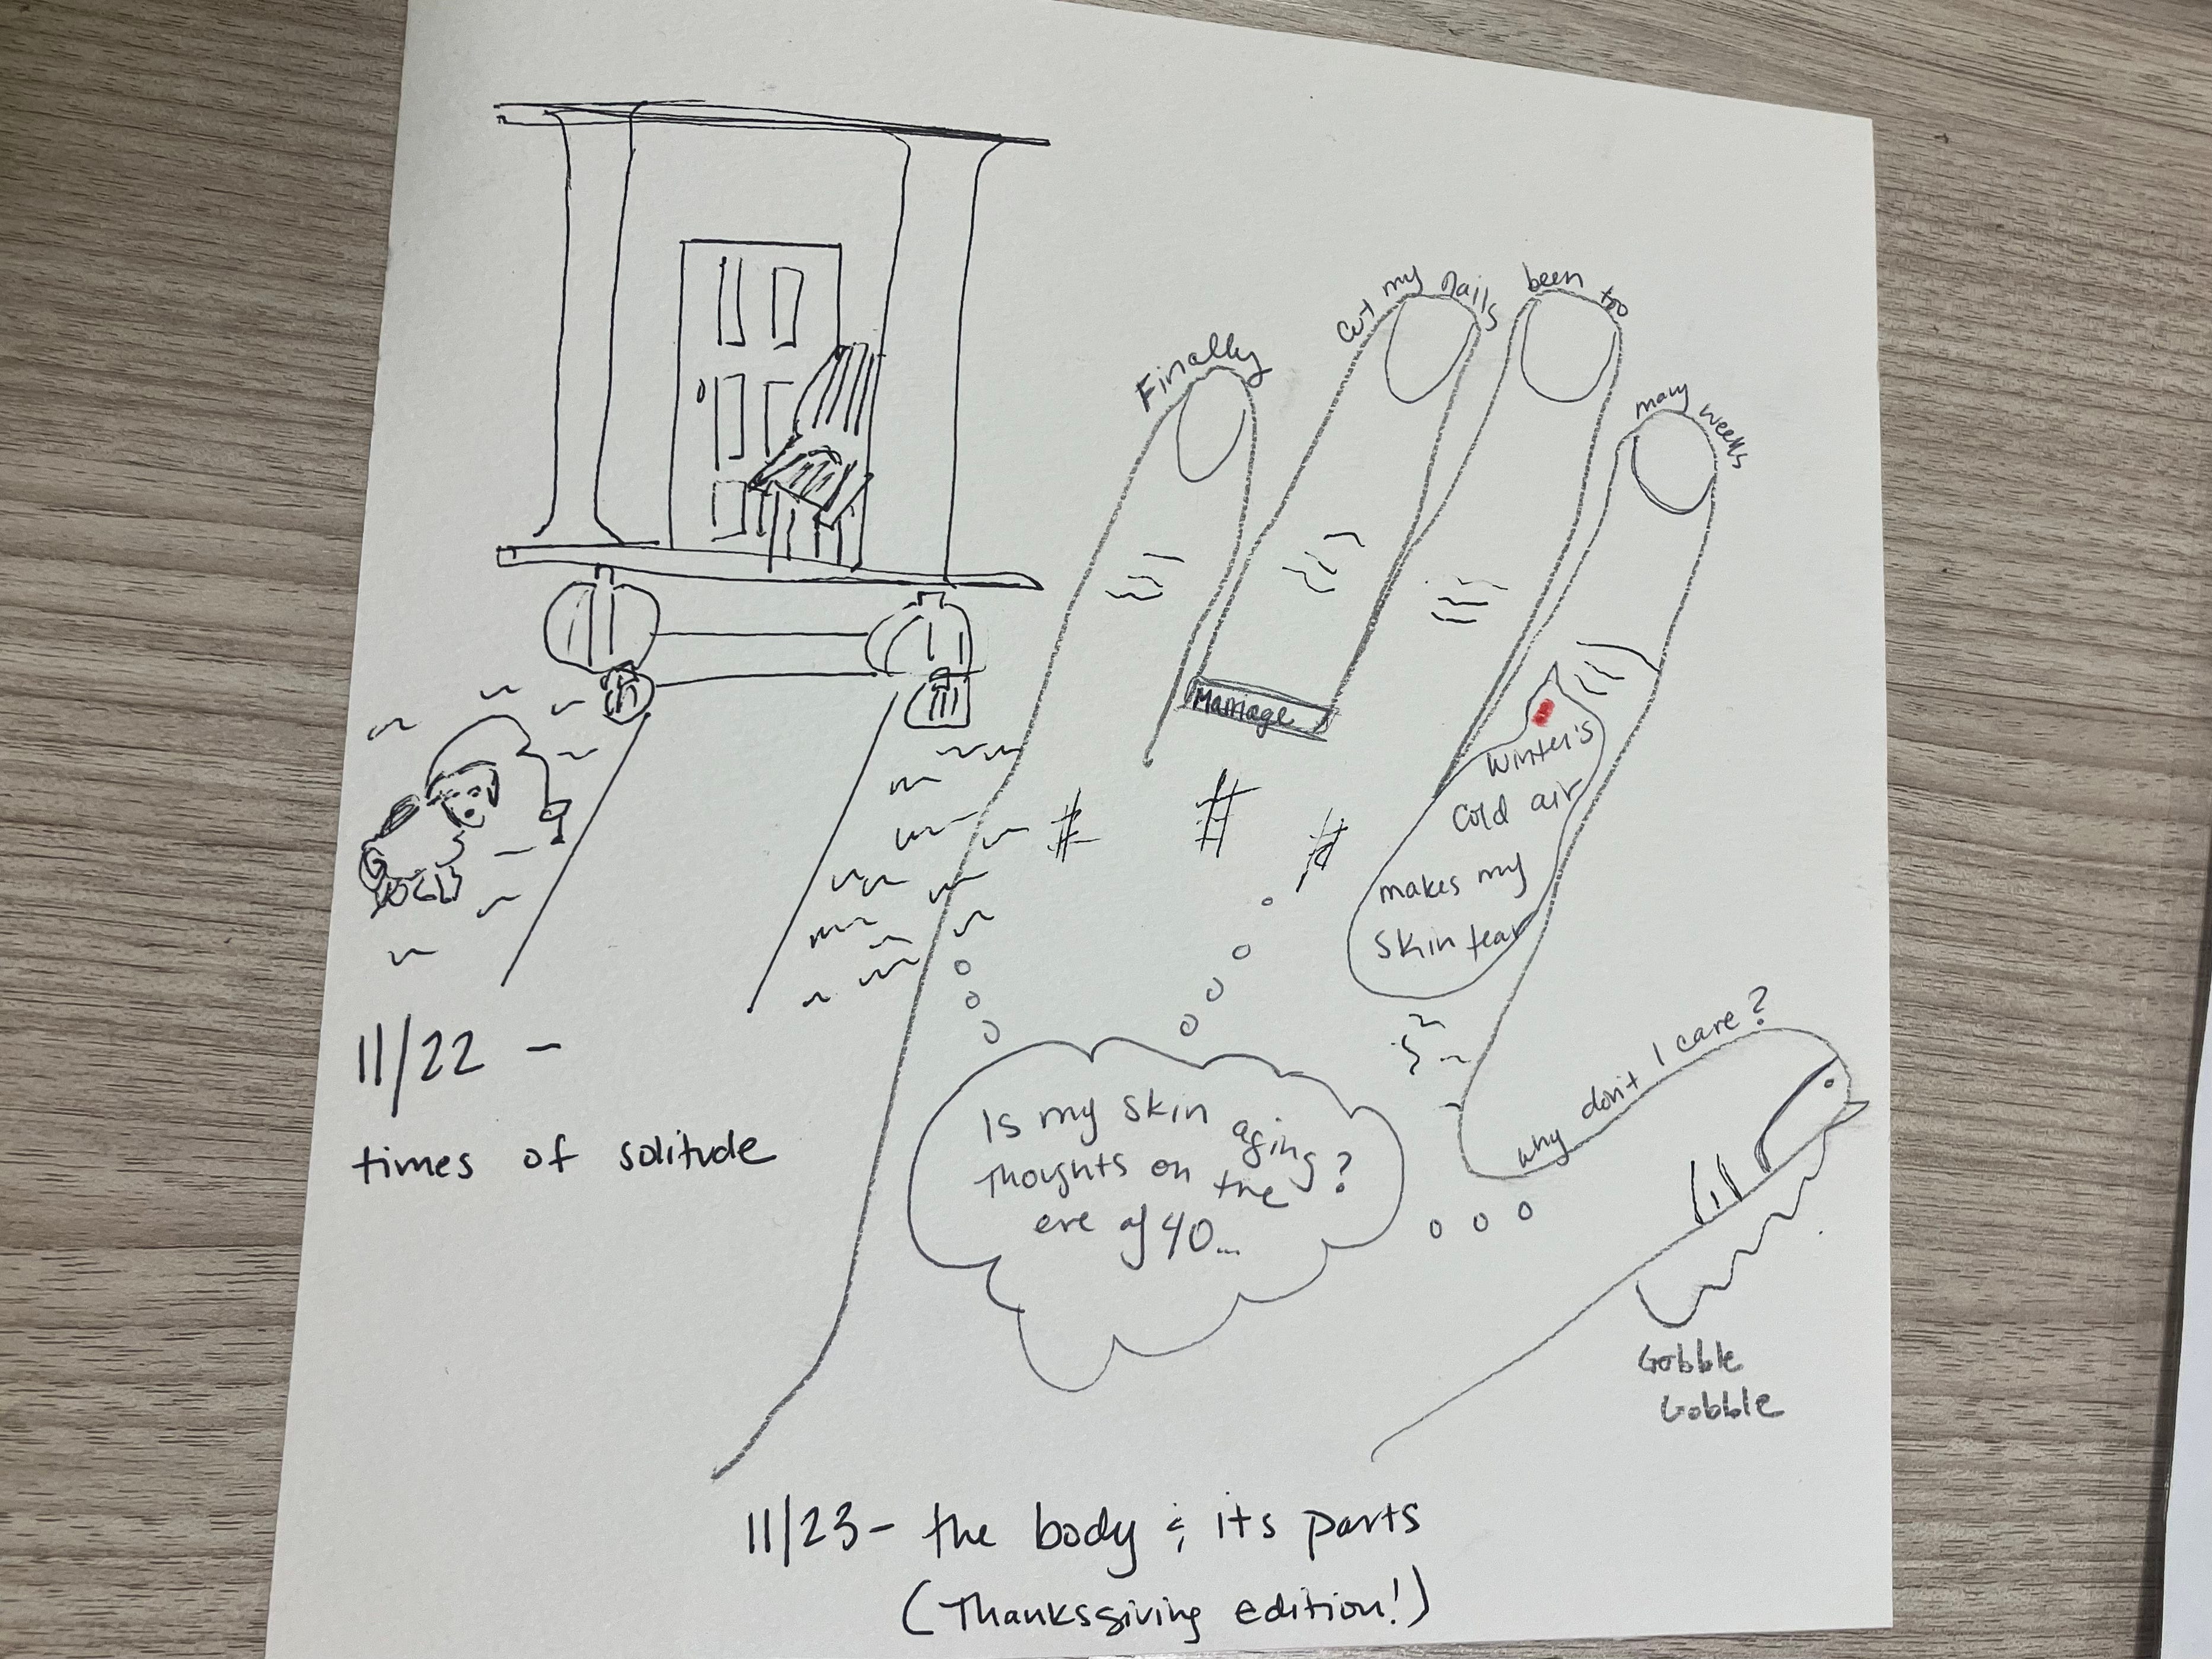 Finally
cut my nails
been too
many weeks
Marriage
Winter's
cold air
makes my
skin tear
why don't I care?
Is my skin aging?
Thoughts on the
eve of 40...
Gobble
Gobble
11/22 -
times of solitude
11/23 - the body & its parts
(Thanksgiving edition!)